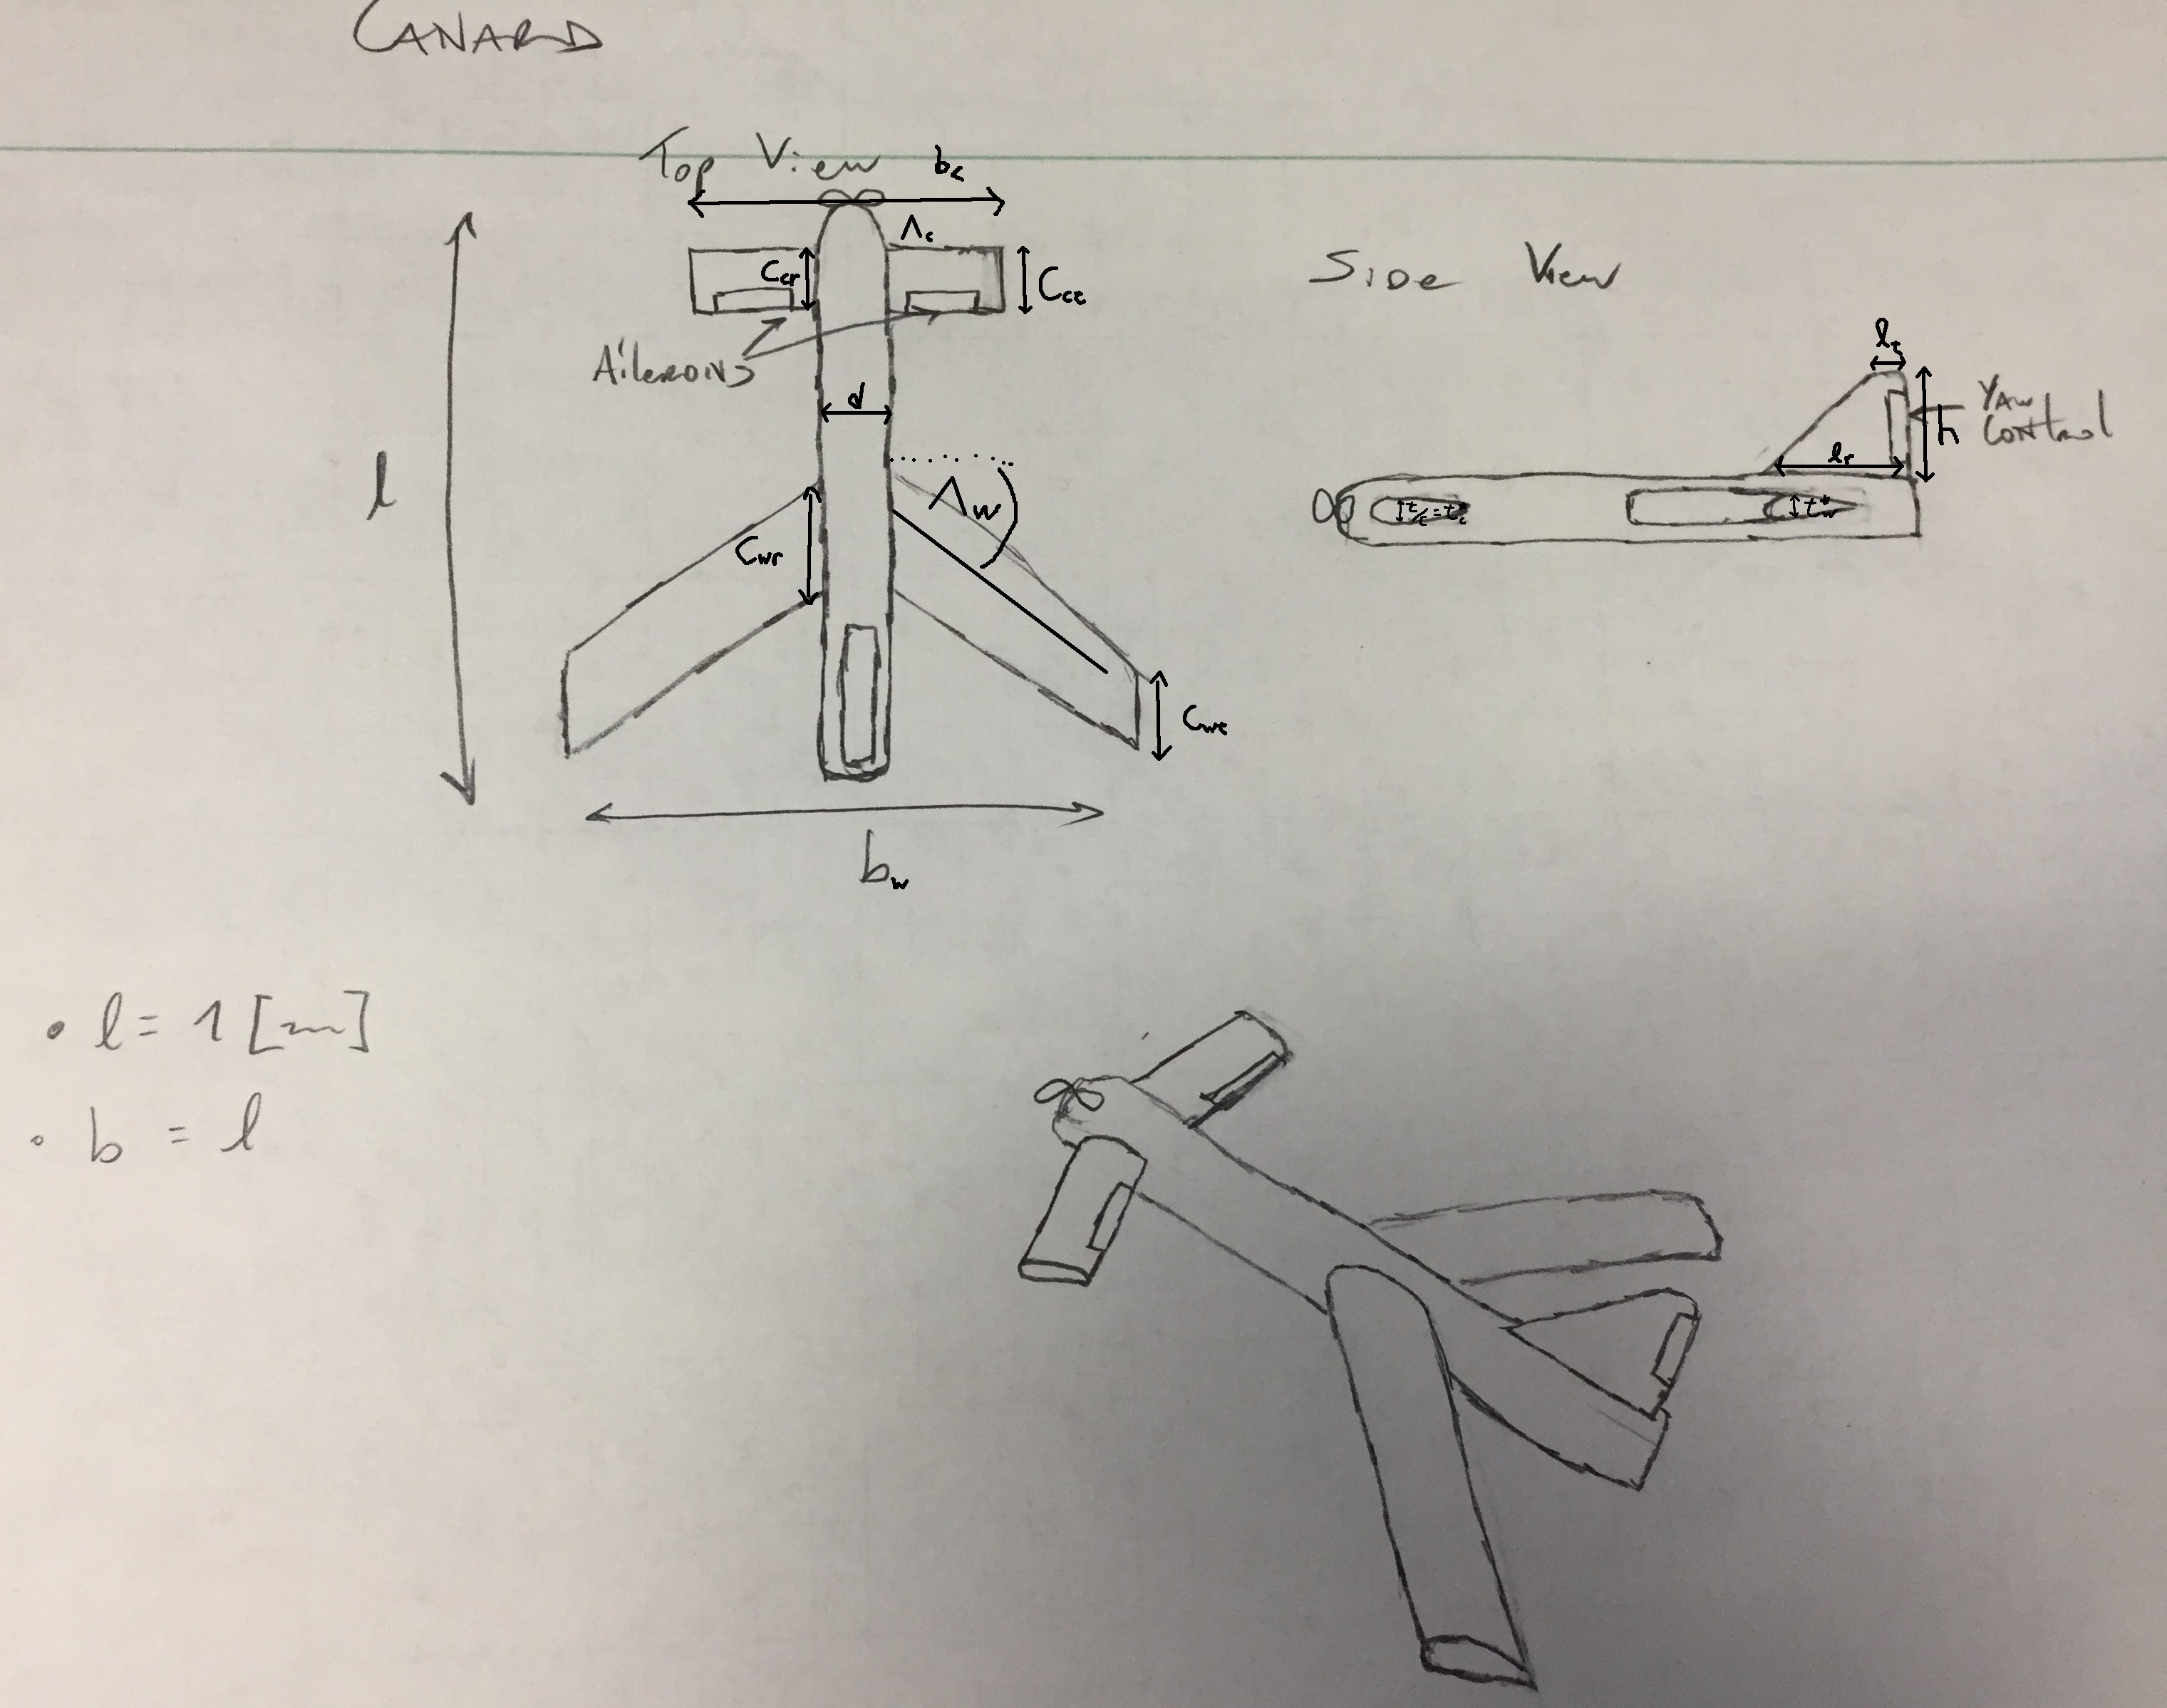 CANARD
Top View
b_c
Λ_c
C_cr
C_ct
Ailerons
d
l
Λ_w
C_wr
C_wt
b_w
Side View
l_t
Yaw
Control
h
l_r
t/c = t*_c
t*_w
• l = 1 [m]
• b = l